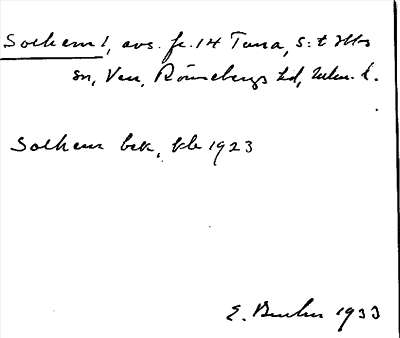 Solhem 1, avs. fr. 14 Tuna, S:t Ibbs
sn, Ven, Rönnebergs hd, Mlm. l.
Solhem bek. kb 1923
E. 1933